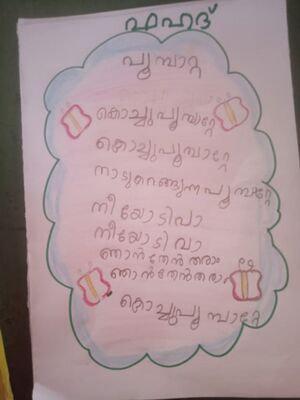 ഫഹദ്
പൂമ്പാറ്റ
കൊച്ചുപൂമ്പാറ്റേ
കൊച്ചുപൂമ്പാറ്റേ
നാടുറങ്ങുന്ന പൂമ്പാറ്റേ
നീയോടിവാ
നീയോടി വാ
ഞാൻതേൻ തരാം
ഞാൻതേൻതരാം
കൊച്ചുപൂമ്പാറ്റേ